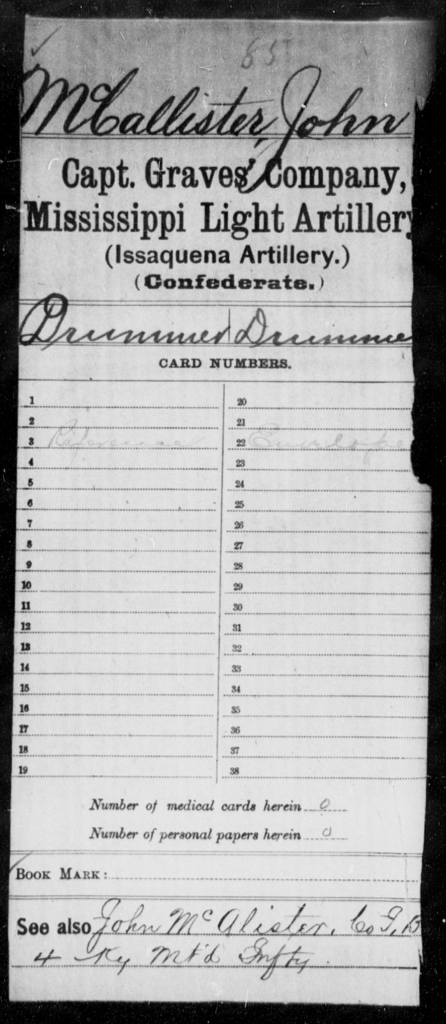 85
McCallister, John
Capt. Graves' Company,
Mississippi Light Artillery
(Issaquena Artillery.)
(Confederate.)
Drummer Drumme
CARD NUMBERS.
1 20
2 21
3 Reference 22 Envelope
4 23
5 24
6 25
7 26
8 27
9 28
10 29
11 30
12 31
13 32
14 33
15 34
16 35
17 36
18 37
19 38
Number of medical cards herein 0
Number of personal papers herein 0
BOOK MARK:
See also John McAlister, Co G, B
4 Ky Mt'd Infty.